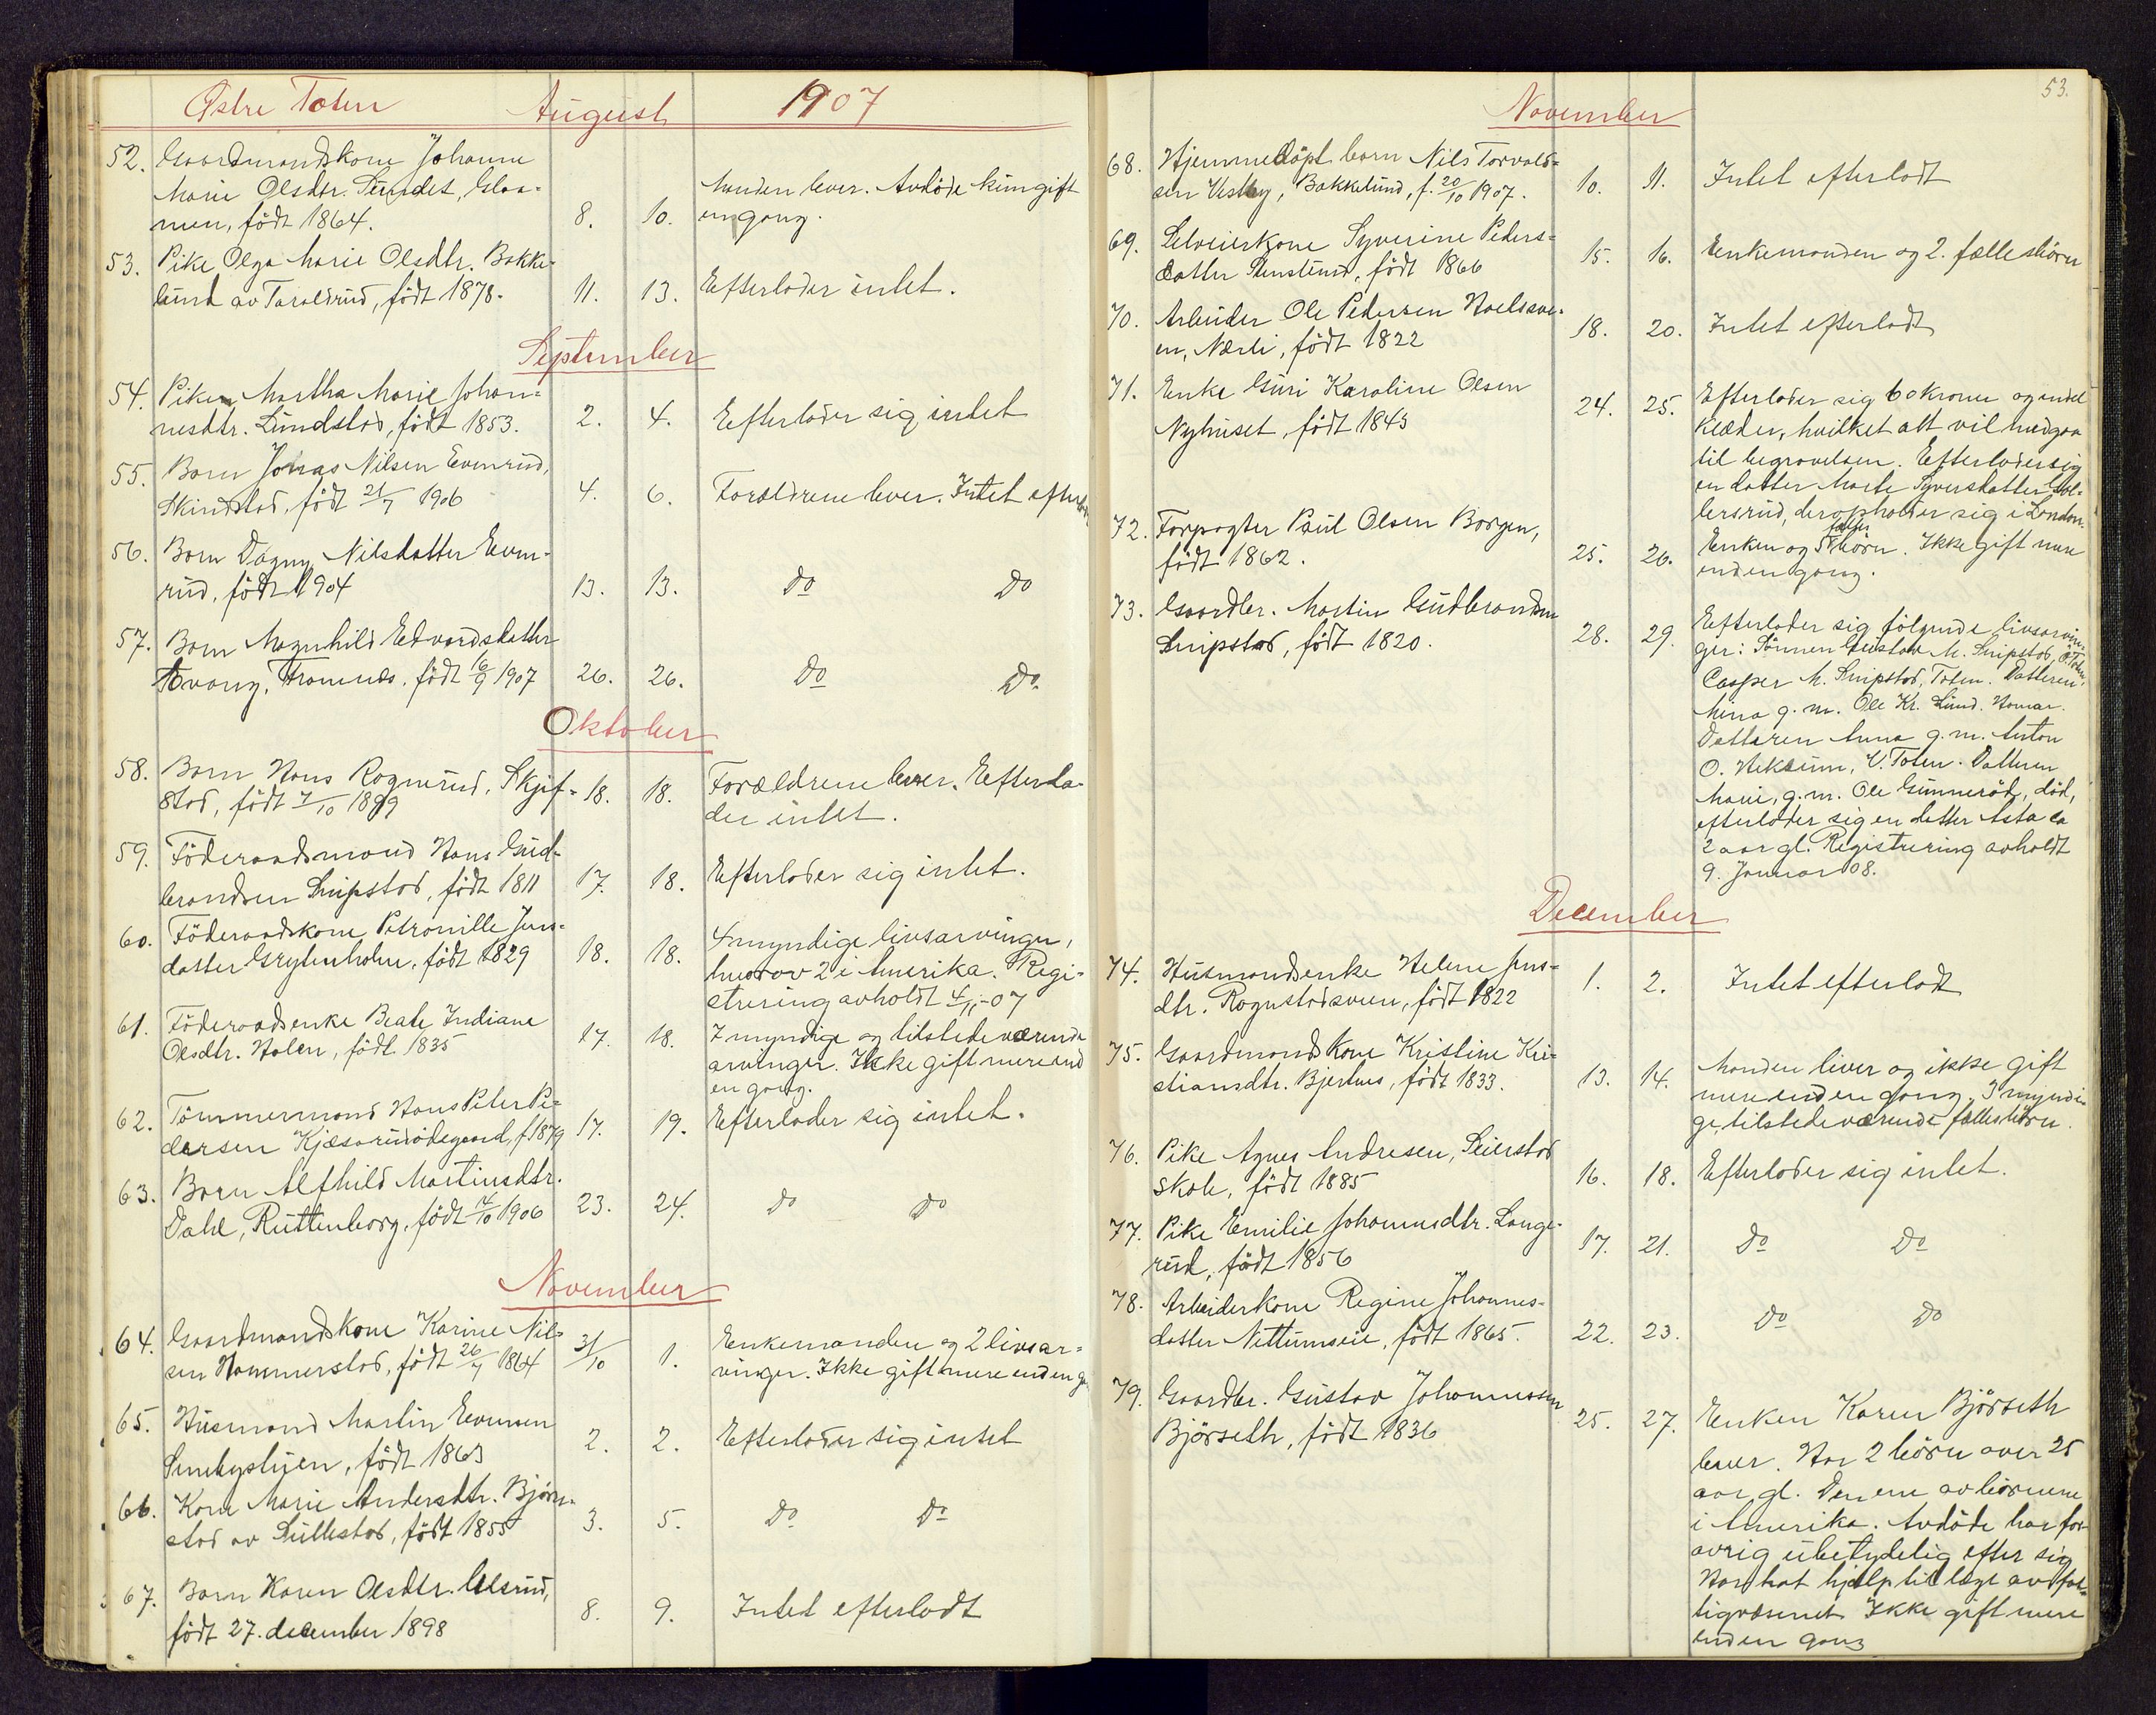 Østre Toten August 1907
52. Gaardmandskone Johanne
Marie Olsdtr. Sundet, Glaa-
men, født 1864. 8. 10. Manden lever. Avdøde kun gift
en gang.
53. Pike Olga Marie Olsdtr. Bakke-
lund av Taraldrud, født 1878. 11. 13. Efterlader intet.
September
54. Piken Martha Marie Johan-
nesdtr. Lundstad, født 1853. 2. 4. Efterlader sig intet
55. Barn Jonas Nilsen Evenrud,
Skindstad, født 21/7 1906 4. 6. Forældrene lever. Intet efterladt
56. Barn Dagny Nilsdatter Even-
rud, født 1904 13. 13. Do Do
57. Barn Magnhild Edvardsdatter
Framnæs, født 16/9 1907 26. 26. Do Do
Oktober
58. Barn Hans Rognerud, Skjef-
stad, født 7/10 1899 18. 18. Forældrene lever. Efterla-
der intet.
59. Föderaadsmand Hans Gud-
brandsen Snipstad, født 1811 17. 18. Efterlader sig intet.
60. Föderaadskone Petronille Jens-
datter Grytenholm, født 1829 18. 18. 4 myndige livsarvinger,
hvorav 2 i Amerika. Regi-
strering avholdt 4/11-07
61. Föderaadsenke Beate Indiane
Olsdtr. Holen, født 1835 17. 18. 7 myndige og tilstedeværende
arvinger. Ikke gift mere end
en gang.
62. Tømmermand Hans Peter Pe-
dersen Kjæsarudødegaard, f. 1879 17. 19. Efterlader sig intet.
63. Barn Alfhild Martinsdtr.
Dahl, Ruttenborg, født 14/10 1906 23. 24. do do
November
64. Gaardmandskone Karine Nil-
sen Hammerstad, født 26/7 1864 31/10 1. Enkemanden og 2 livsar-
vinger. Ikke gift mere end en
65. Husmand Martin Evensen
født 1863 2. 2. Efterlader sig intet
66. Kone Marie Andersdtr. Bjørn-
stad av Sullestad, født 1855 3. 5. Do Do
67. Barn Karen Olsdtr. Ulsrud,
født 27. december 1898 8. 9. Intet efterladt
53.
November
68. Hjemmedøpt barn Nils Torvald-
sen Vestby, Bakkelund, f. 20/10 1907. 10. 11. Intet efterladt
69. Selveierkone Syverine Peders-
datter Stenslund, født 1866 15. 16. Enkemanden og 2. fællesbörn
70. Arbeider Ole Pedersen Hoelssve-
en, Nærli, født 1822 18. 20. Intet efterladt
71. Enke Guri Karoline Olsen
Nyhuset, født 1843 24. 25. Efterlader sig 60 kroner og endel
klæder, hvilket alt vil medgaa
til begravelsen. Efterlader sig
en datter Marte Syversdatter Gul-
lersrud, der opholder sig i London.
72. Forpagter Paul Olsen Borgen,
født 1862. 25. 26. Enken og 5 fælles børn. Ikke gift mere
end en gang.
73. Gaardbr. Martin Gudbrandsen
Snipstad, født 1820. 28. 29. Efterlader sig følgende livsarvin-
ger: Sønnen Gustav M. Snipstad, Ö. Toten,
Casper M. Snipstad, Toten. Datteren
Mina g. m. Ole Kr. Lund. Hamar.
Datteren Anna g. m. Anton
O. Heksum, V. Toten. Datteren
Marie, g. m. Ole Gunneröd, död,
efterlader sig en datter Asta ca
2 aar gl. Registrering avholdt
9. Januar 08.
December
74. Husmandsenke Helene Jens-
dtr. Rognstadsveen, født 1822 1. 2. Intet efterladt
75. Gaardmandskone Kristine Kri-
stiansdtr. Bjerknes, født 1833. 13. 14. Manden lever og ikke gift
mere end en gang. 7 myndi-
ge, tilstedeværende fællesbörn.
76. Pike Agnes Andresen, Seierstad
skole, født 1885 16. 18. Efterlader sig intet.
77. Pike Emilie Johannesdtr. Lange-
rud, født 1856 17. 21. Do Do
78. Arbeiderkone Regine Johannes-
datter Nettumseie, født 1865. 22. 23. Do Do
79. Gaardbr. Gustav Johannessen
Björseth, født 1836 25. 27. Enken Karen Björseth
lever. Har 2 börn over 25
aar gl. Den ene av börnene
i Amerika. Avdøde har for-
øvrig ubetydelig efter sig
Har hat hjælp til læge av fat-
tigvæsenet. Ikke gift mere
end en gang